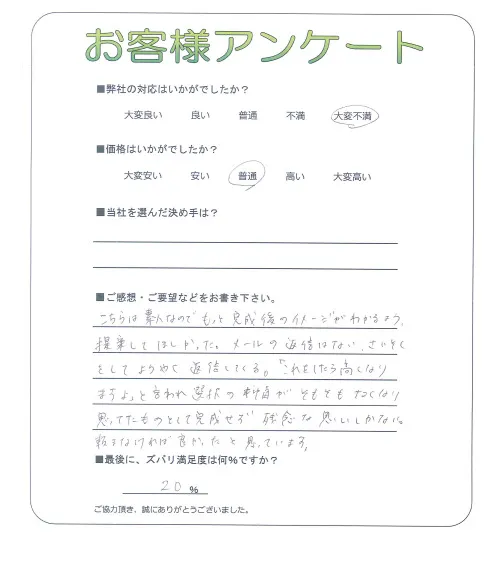 お客様アンケート
■弊社の対応はいかがでしたか？
大変良い 良い 普通 不満 大変不満
■価格はいかがでしたか？
大変安い 安い 普通 高い 大変高い
■当社を選んだ決め手は？
■ご感想・ご要望などをお書き下さい。
こちらは素人なのでもっと完成後のイメージがわかるよう、
提案してほしかった。メールの返信はない、さいそく
をしてようやく返信してくる。「これをしたら高くなり
ますよ」と言われ選択の がそもそもなくなり
思ってたものとして完成せず残念な思いしかない。
頼まなければ良かったと思っています。
■最後に、ズバリ満足度は何％ですか？
20 %
ご協力頂き、誠にありがとうございました。